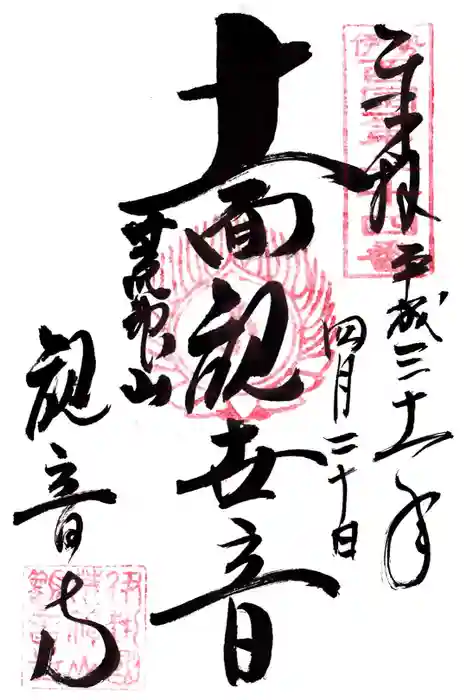 奉拝 平成三十一年
四月二十日
十一面観世音
荒神山
観音寺